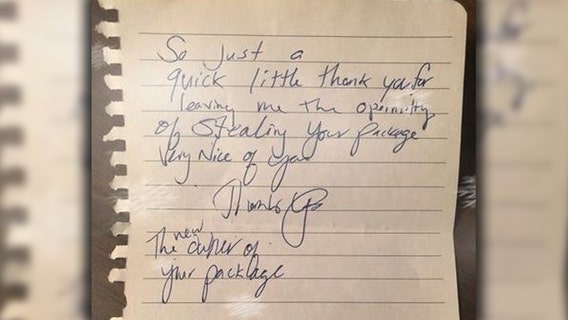 So Just a
quick little thank you for
leaving me the opernuity
of stealing your package
Very Nice of you
Thanks
The new owner of
your package